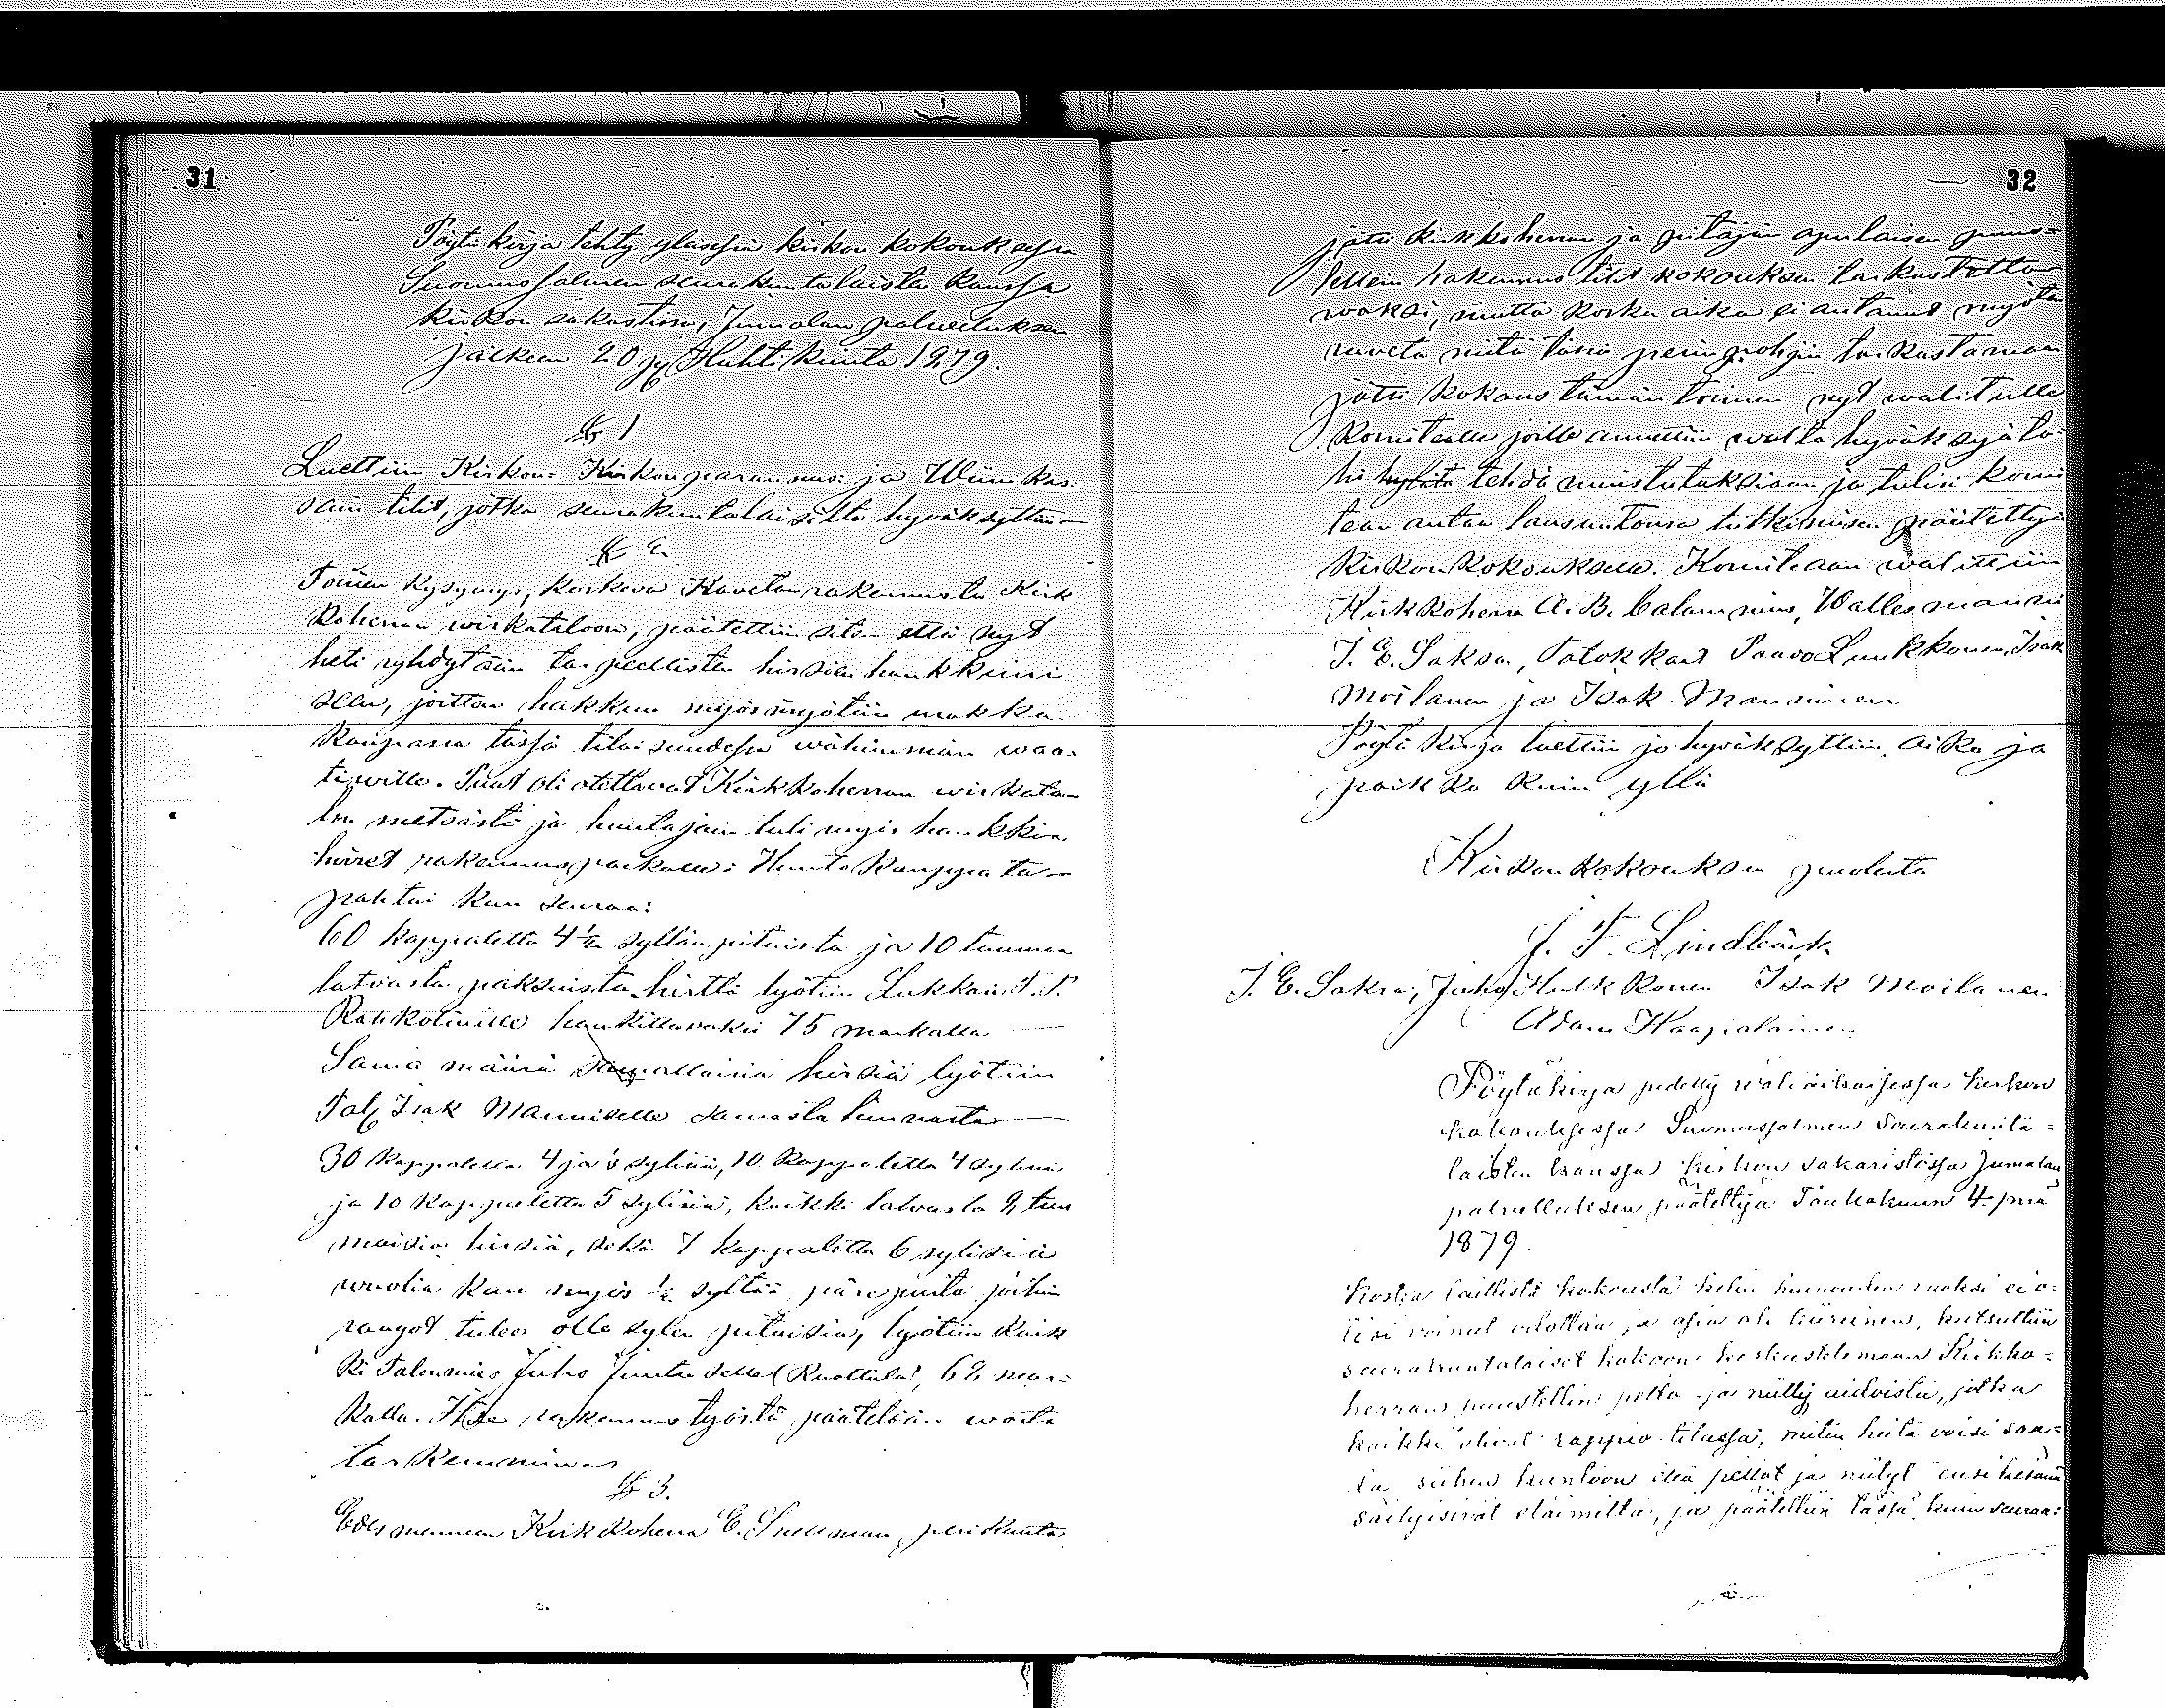 31
Pöytäkirja tehty yleisessä kirkon kokouksessa
Suomussalmen seurakuntalaisten kanssa
kirkon sakastissa, Jumalan palveluksen
jälkeen 20 p. Huhtikuuta 1879.
§ 1
Luettiin Kirkon- Kirkonparannus- ja Wiini kas-
sain tilit, jotka seurakuntalaisilta hyväksyttiin
§ 2.
Toinen kysymys, koskeva Navetan rakennusta Kirk
koherran wirkataloon, päätettiin siten että nyt
heti ryhdytään tarpeellisten hirsien hankkimi
seen, joitten hakkuu myös myötiin
kaupassa tässä tilaisuudessa wähimmän waa-
tiwille. Puut oli otettawat Kirkkoherran wirkata-
lon metsästä ja huutajain tuli myös hankkia
hirret rakennus paikalle: Huuto kauppa ta-
pahtui kun seuraa:
60 kappaletta 4 1/2 syltän pituista ja 10 tuuman
latvasta paksuista hirttä lyötiin Lukkari
hankittavaksi 75 markalla
Sama määrä samallaisia hirsiä lyötiin
Tal. Isak Manniselle samasta summasta
30 kappaletta 4 ja 1/2 sylisiä, 10 kappaletta 4 sylisiä
ja 10 kappaletta 5 sylisiä, kaikki latvasta 9 tuu
maisia hirsiä, sekä 7 kappaletta 6 sylisiä
wuolia kun myös 1/2 syltää pärepuita joihin
tulee olla sylen pituisia, lyötiin kaik
ki Talonmies Juho Juntuselle (Ruottula), 69 mar-
kalla. Itse rakennus työstä päätetään wasta
tarkemmin
§ 3.
Edesmenneen Kirkkoherra E. Snellman perikunta
32
jätti kirkkoherran ja pitäjän apulaisen puus-
tellein rakennus tilit kokouksen tarkastetta
waksi, mutta koska aika ei antanut myöten
ruveta niitä tässä perinpohjin tarkastamaan
jätti kokous tämän toimen nyt walitulle
Komitealle joille annettiin walta hyväksyä ta-
hi hylätä tehdä muistutuksiaan ja tulisi komi
tean antaa lausuntonsa tutkimisen päätettyä
Kirkon kokoukselle. Komiteaan walittiin
Kirkkoherra A. B. Calamnius, Wallesmanni
J. E. Saksa, Talokkaat Paavo Luukkonen, Isak
Moilanen ja Isak Manninen
Pöytäkirja luettiin ja hyväksyttiin, aika ja
paikka kuin yllä
Kirkonkokouksen puolesta
J. F. Lindbäck
J. E. Saksa, Juho Hulkkonen Isak Moilanen
Adam Haapalainen
Pöytäkirja pidetty wäliaikaisessa kirkon
kokouksessa Suomussalmen Seurakunta=
laisten kanssa kirkon sakaristossa Jumalan
palvelluksen päätettyä Toukokuun 4. pnä
1879.
Koska laillista kokousta kelin huonouden vuoksi ei o-
lisi voinut odottaa ja asia oli kiireinen, kutsuttiin
seurakuntalaiset kokoon keskustelemaan Kirkko=
herran puustellin pelto- ja niitty aidoista, jotka
kaikki olivat rappio tilassa, miten heitä voisi saa=
da siihen kuntoon että pellot ja niityt ensi kesänä
säilyisivät eläimiltä, ja päätettiin tässä kuin seuraa: